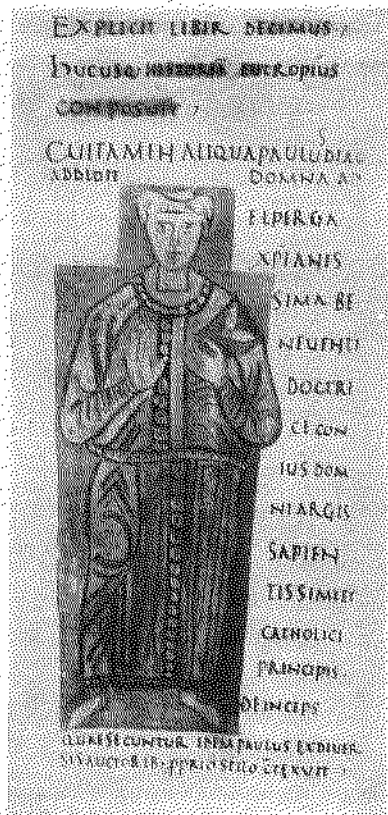 EXPLICIT LIBER DECIMUS
hUCUSQ; hISTORIA EUTROPIUS
COMPOSUIT
CUI TAMEN ALIQUA PAULUS DIAC
ADDIDIT DOMNA A
ELPERGA
XPIANIS
SIMA BE
NEUENTI
DOCTRI
CE CON
IUS DOM
NI ARGIS
SAPIEN
TISSIMI ET
CATHOLICI
PRINCIPIS
DEINCEPS
QUAE SECUNTUR IDEM PAULUS EX DIUER
SIS AUCTORIB; PPRIO STILO CTEXUIT